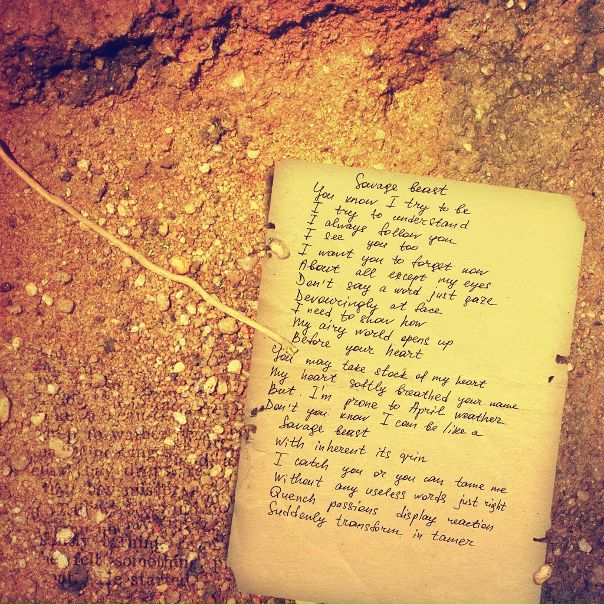 Savage beast
You know I try to be
I try to understand
I always follow you
I see you too
I want you to forget now
About all except my eyes
Don't say a word just gaze
Devouringly at face
I need to show how
My airy world opens up
Before your heart
You may take stock of my heart
My heart softly breathed your name
But I'm prone to April weather
Don't you know I can be like a
Savage beast
With inherent its grin
I catch you or you can tame me
Without any useless words just right
Quench passions display reaction
Suddenly transform in tamer
him
felt something
started